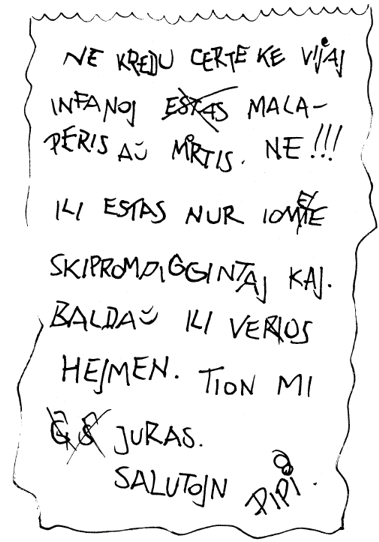 NE KREDU CERTE KE VIJAJ
INFANOJ ESTAS MALA-
PERIS AŬ MORTIS. NE!!!
ILI ESTAS NUR IOMETE
SKIPROMPIĜGINTAJ KAJ.
BALDAŬ ILI
HEJMEN. TION MI
JURAS.
SALUTOJN PIPI.